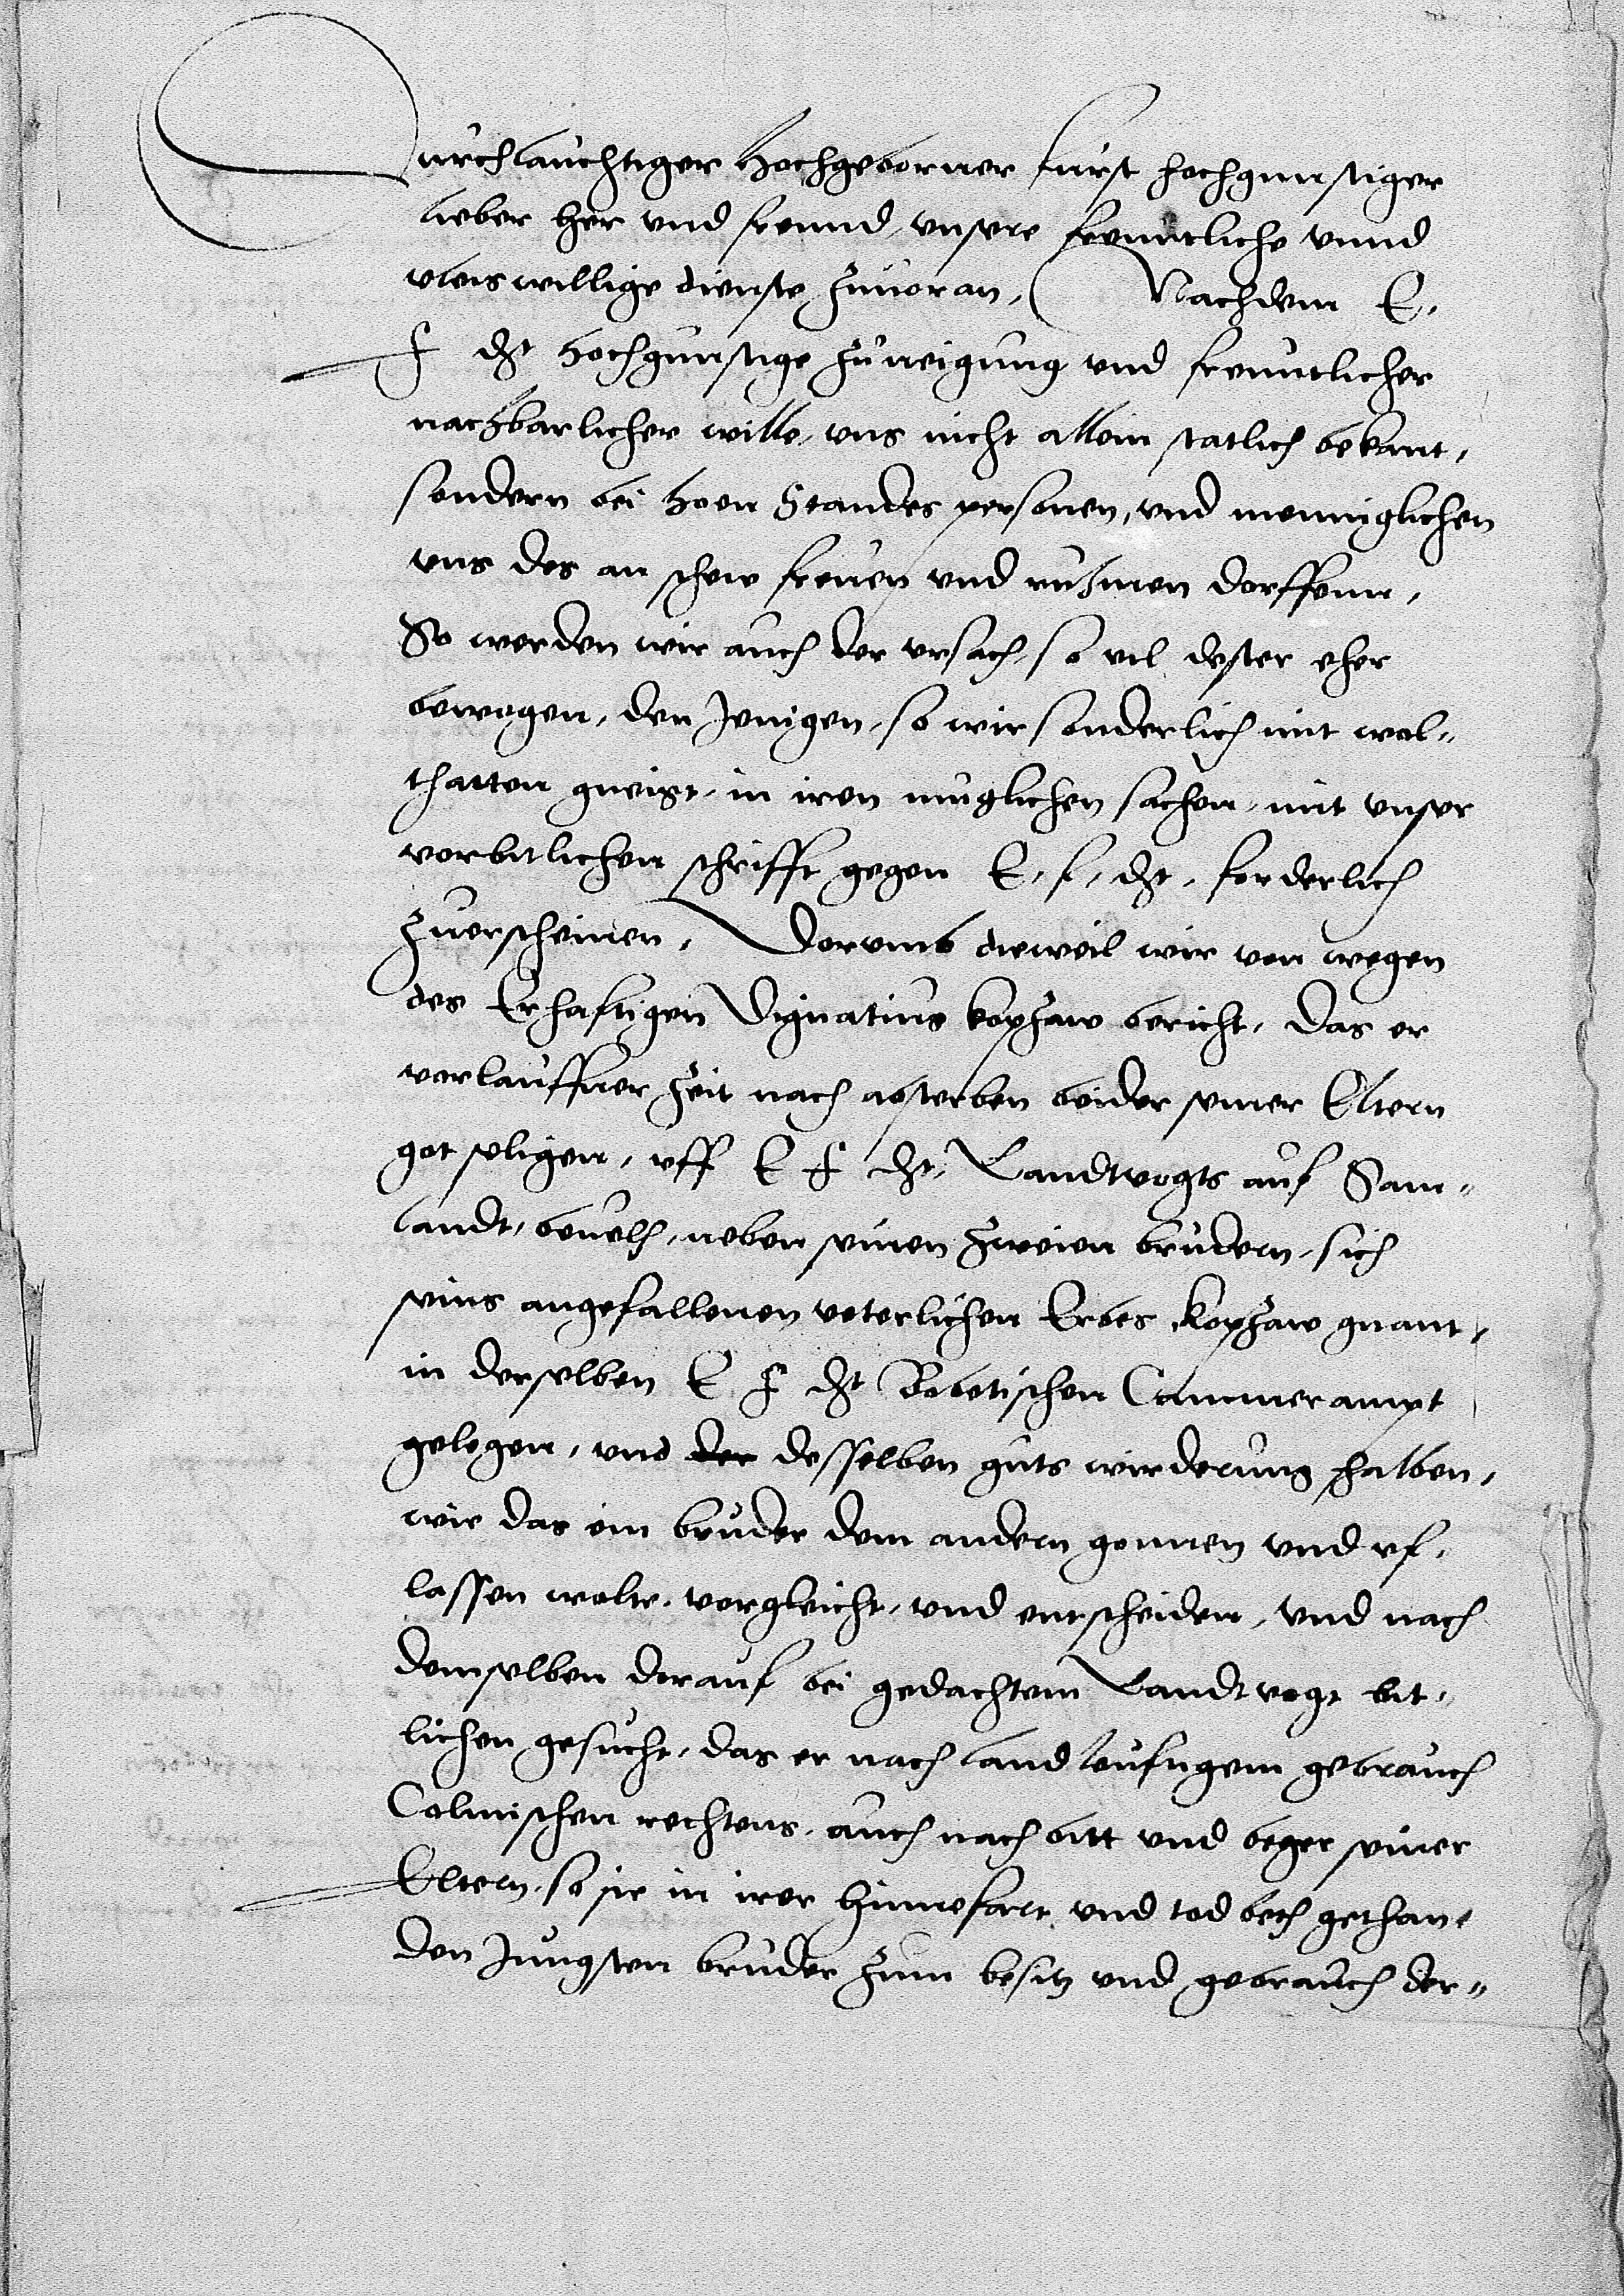 Durchlauchtiger Hochgeborner furst hochgunstiger
lieber her vnd freund, vnsere freuntliche vnnd
vleis willige dienste zuuoran, Nachdem E.
f dht hochgunstige zuneigung vnd freuntlicher
nachbarlicher wille, vns nicht allein statlich bekant,
sondern bei hoen Standes personen, vnd menniglichen
vns des an schew freuen vnd ruhmen dorffenn,
So werden wir auch der vrsach, so vil dester eher
bewogen, den Jenigen, so wir sonderlich mit wol-
thatten gneigt, in iren muglichen sachen, mit vnser
vorbitlichen schrifft gegen E. f. dht. forderlich
zuerscheinen, Dorumb dieweil wir von wegen
des Erhafftigen Vignatius kopzaw bericht, das er
vorlauffner zeit nach absterben beider seiner Eltern
got seligen, vff E f dht. Landtvogts auf Sam-
landt, beuelh, neben seinen zweien brudern, sich
seins angefallenen veterlichen Erbes, kopzaw gnant,
in derselben E f dht Bobetischen Cammerampt
gelegen, vnd der desselben guts wirderung halben,
wie das ein bruder dem andern gonnen vnd vf-
lassen wolte, vorgleicht, vnd entscheiden, vnd nach
demselben dorauf bei gedachtem Landtvogt bit-
lichen gesucht, das er nach land leufugem gebrauch
Colmischen rechtens, auch nach bitt vnd beger seiner
Eltern, so sie in irer hinnefart vnd tod beth gethan,
den Jungsten bruder zum besitz vnd gebrauch der-